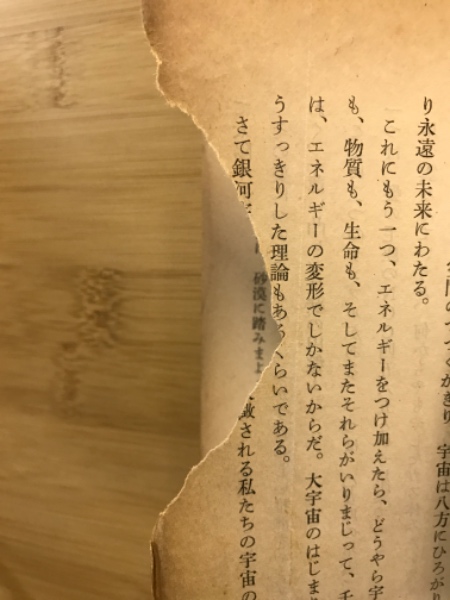 空間のつづくかぎり、宇宙は八方にひろがり
り永遠の未来にわたる。
これにもう一つ、エネルギーをつけ加えたら、どうやら宇
も、物質も、生命も、そしてまたそれらがいりまじって、千
は、エネルギーの変形でしかないからだ。大宇宙のはじまり
うすっきりした理論もあるくらいである。
さて銀河
される私たちの宇宙の
砂漠に踏みまよ